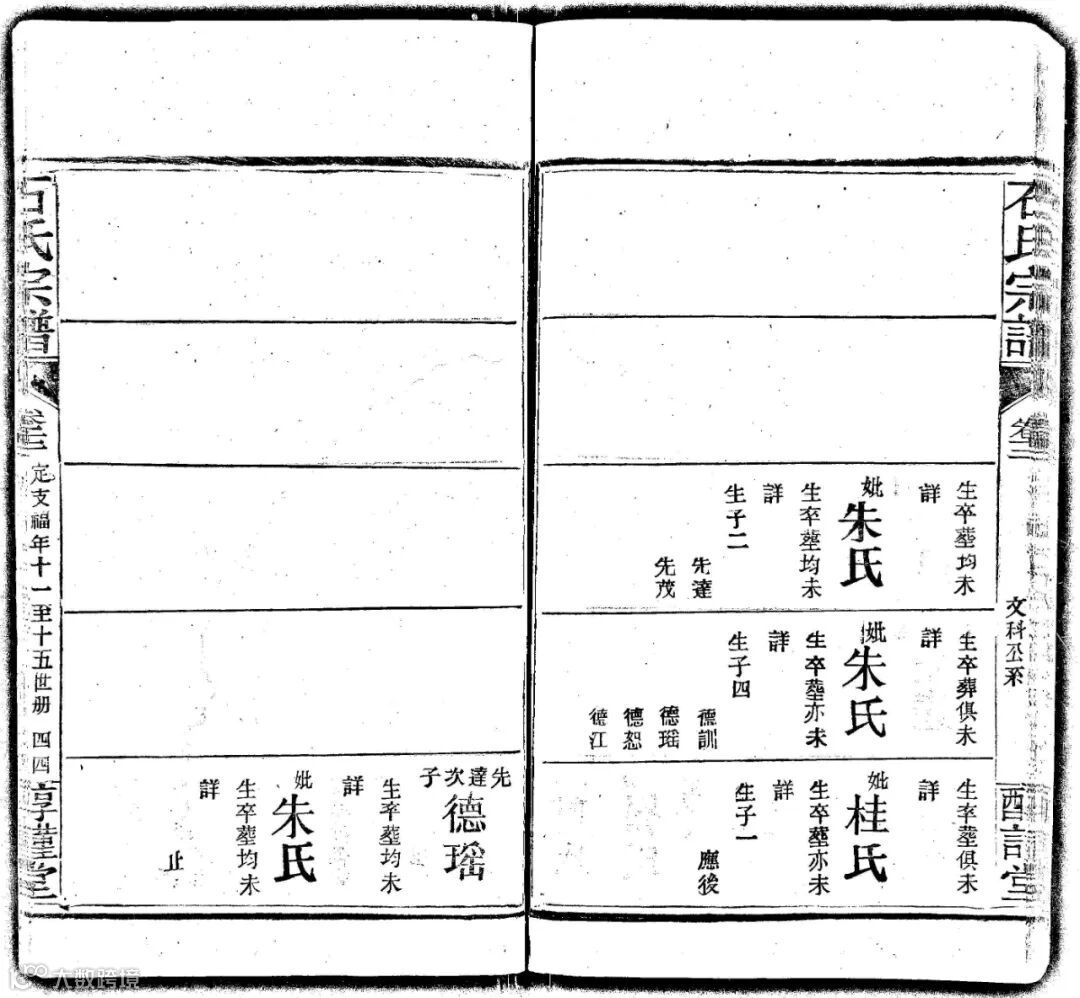 石氏宗譜
卷三
文科公系
生卒塟均未
詳
妣
朱氏
生卒塟均未
詳
生子二
先達
先茂
生卒葬俱未
詳
妣
朱氏
生卒塟亦未
詳
生子四
德訓
德瑶
德恕
德江
生卒塟俱未
詳
妣
桂氏
生卒塟亦未
詳
生子一
應後
先達次子
德瑶
生卒塟均未
詳
妣
朱氏
生卒塟均未
詳
止
石氏宗譜
卷三
定支福年十一至十五世册
四四
惇謹堂
大数跨境